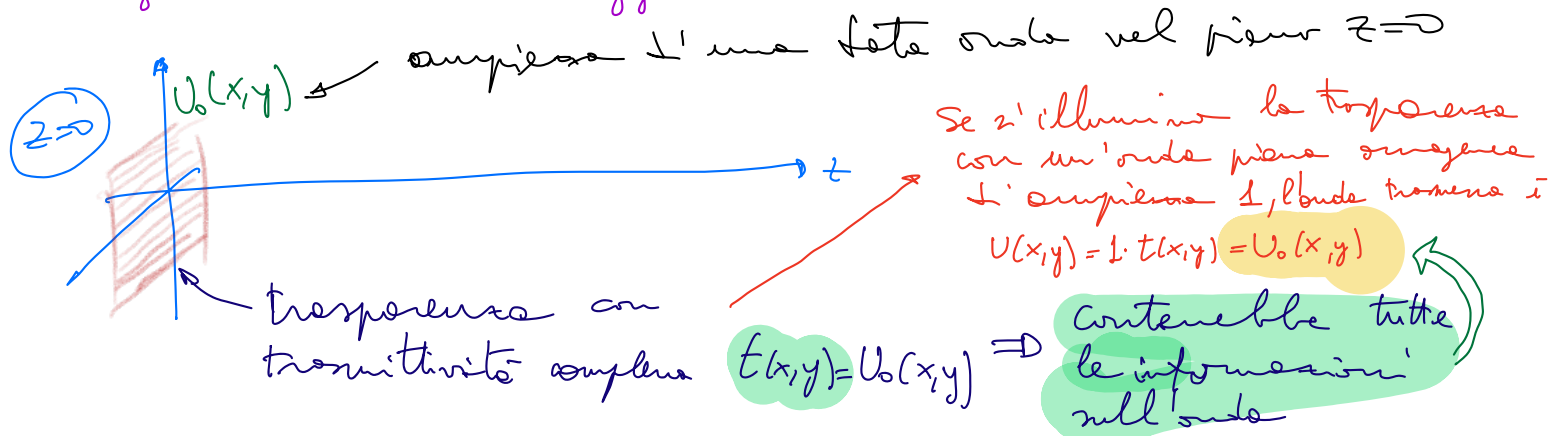 ampiezza d'una data onda nel piano z=0
U₀(x,y)
z=0
z
Se s'illumina la trasparenza
con un'onda piana omogenea
d'ampiezza 1, l'onda trasmessa è
U(x,y)=1·t(x,y)=U₀(x,y)
trasparenza con
trasmittività complessa t(x,y)=U₀(x,y) ⇒
conterrebbe tutte
le informazioni
sull'onda